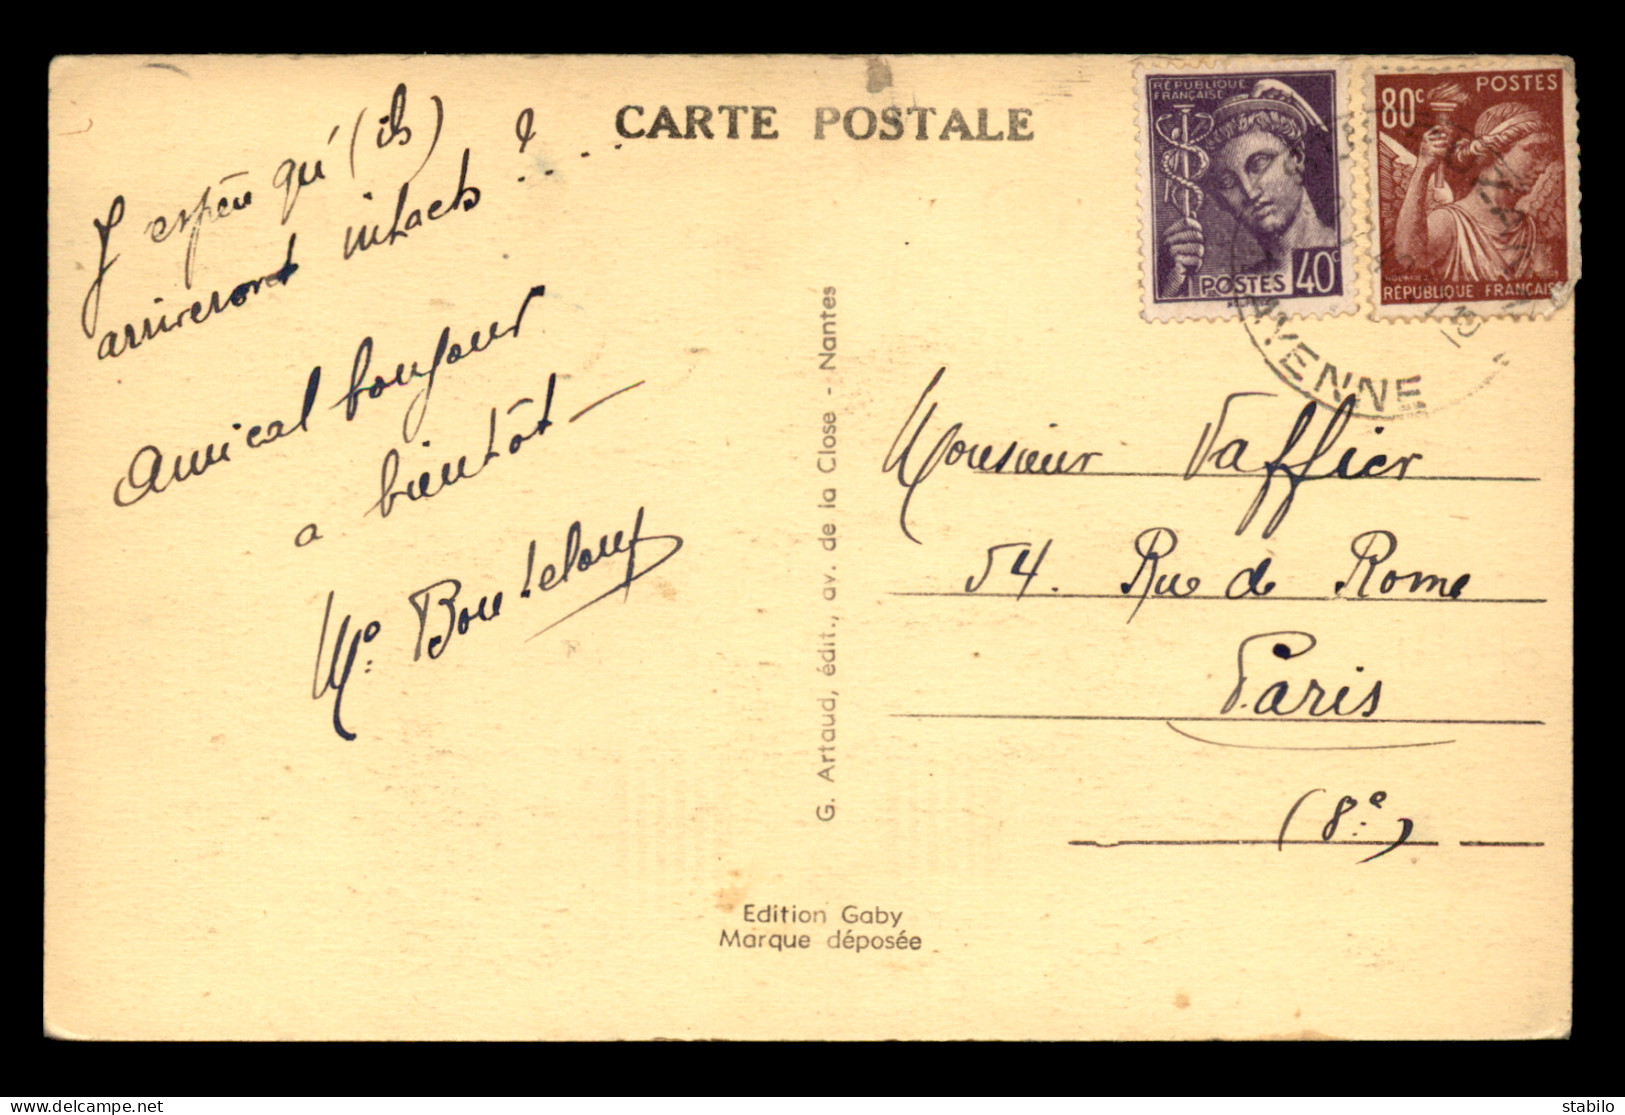 CARTE POSTALE
J'espère qu'(ils)
arriveront intacts ?...
Amical bonjour
a bientôt –
Me Bouteloup
RÉPUBLIQUE
FRANÇAISE
POSTES 40c
80c POSTES
RÉPUBLIQUE FRANÇAISE
MAYENNE
Monsieur Vaffier
54. Rue de Rome
Paris
(8e)
G. Artaud, édit., av. de la Close - Nantes
Edition Gaby
Marque déposée
stabilo